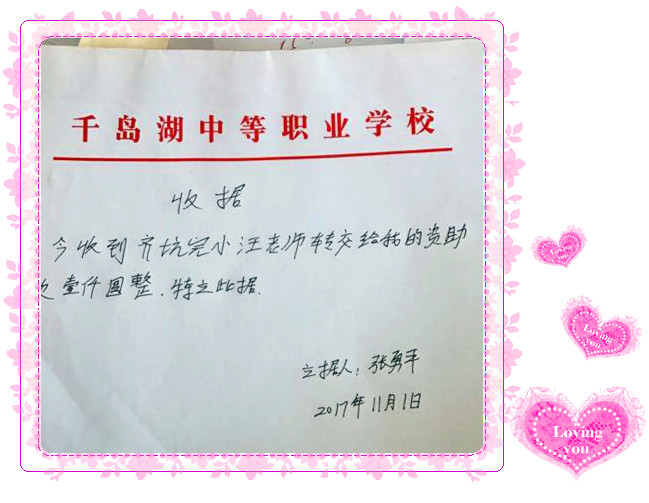 千岛湖中等职业学校
收据
今收到齐坑完小汪老师转交给我的资助
壹仟圆整.特立此据.
立据人:张勇平
2017年11月1日
Loving
you
Loving
you
Loving
you